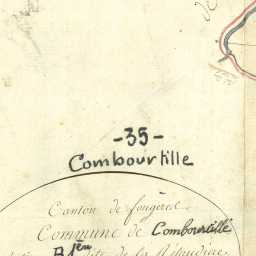 -35-
Combourtille
Canton de fougères
Commune de Combourtillé
B 1en dite de la Métaidière